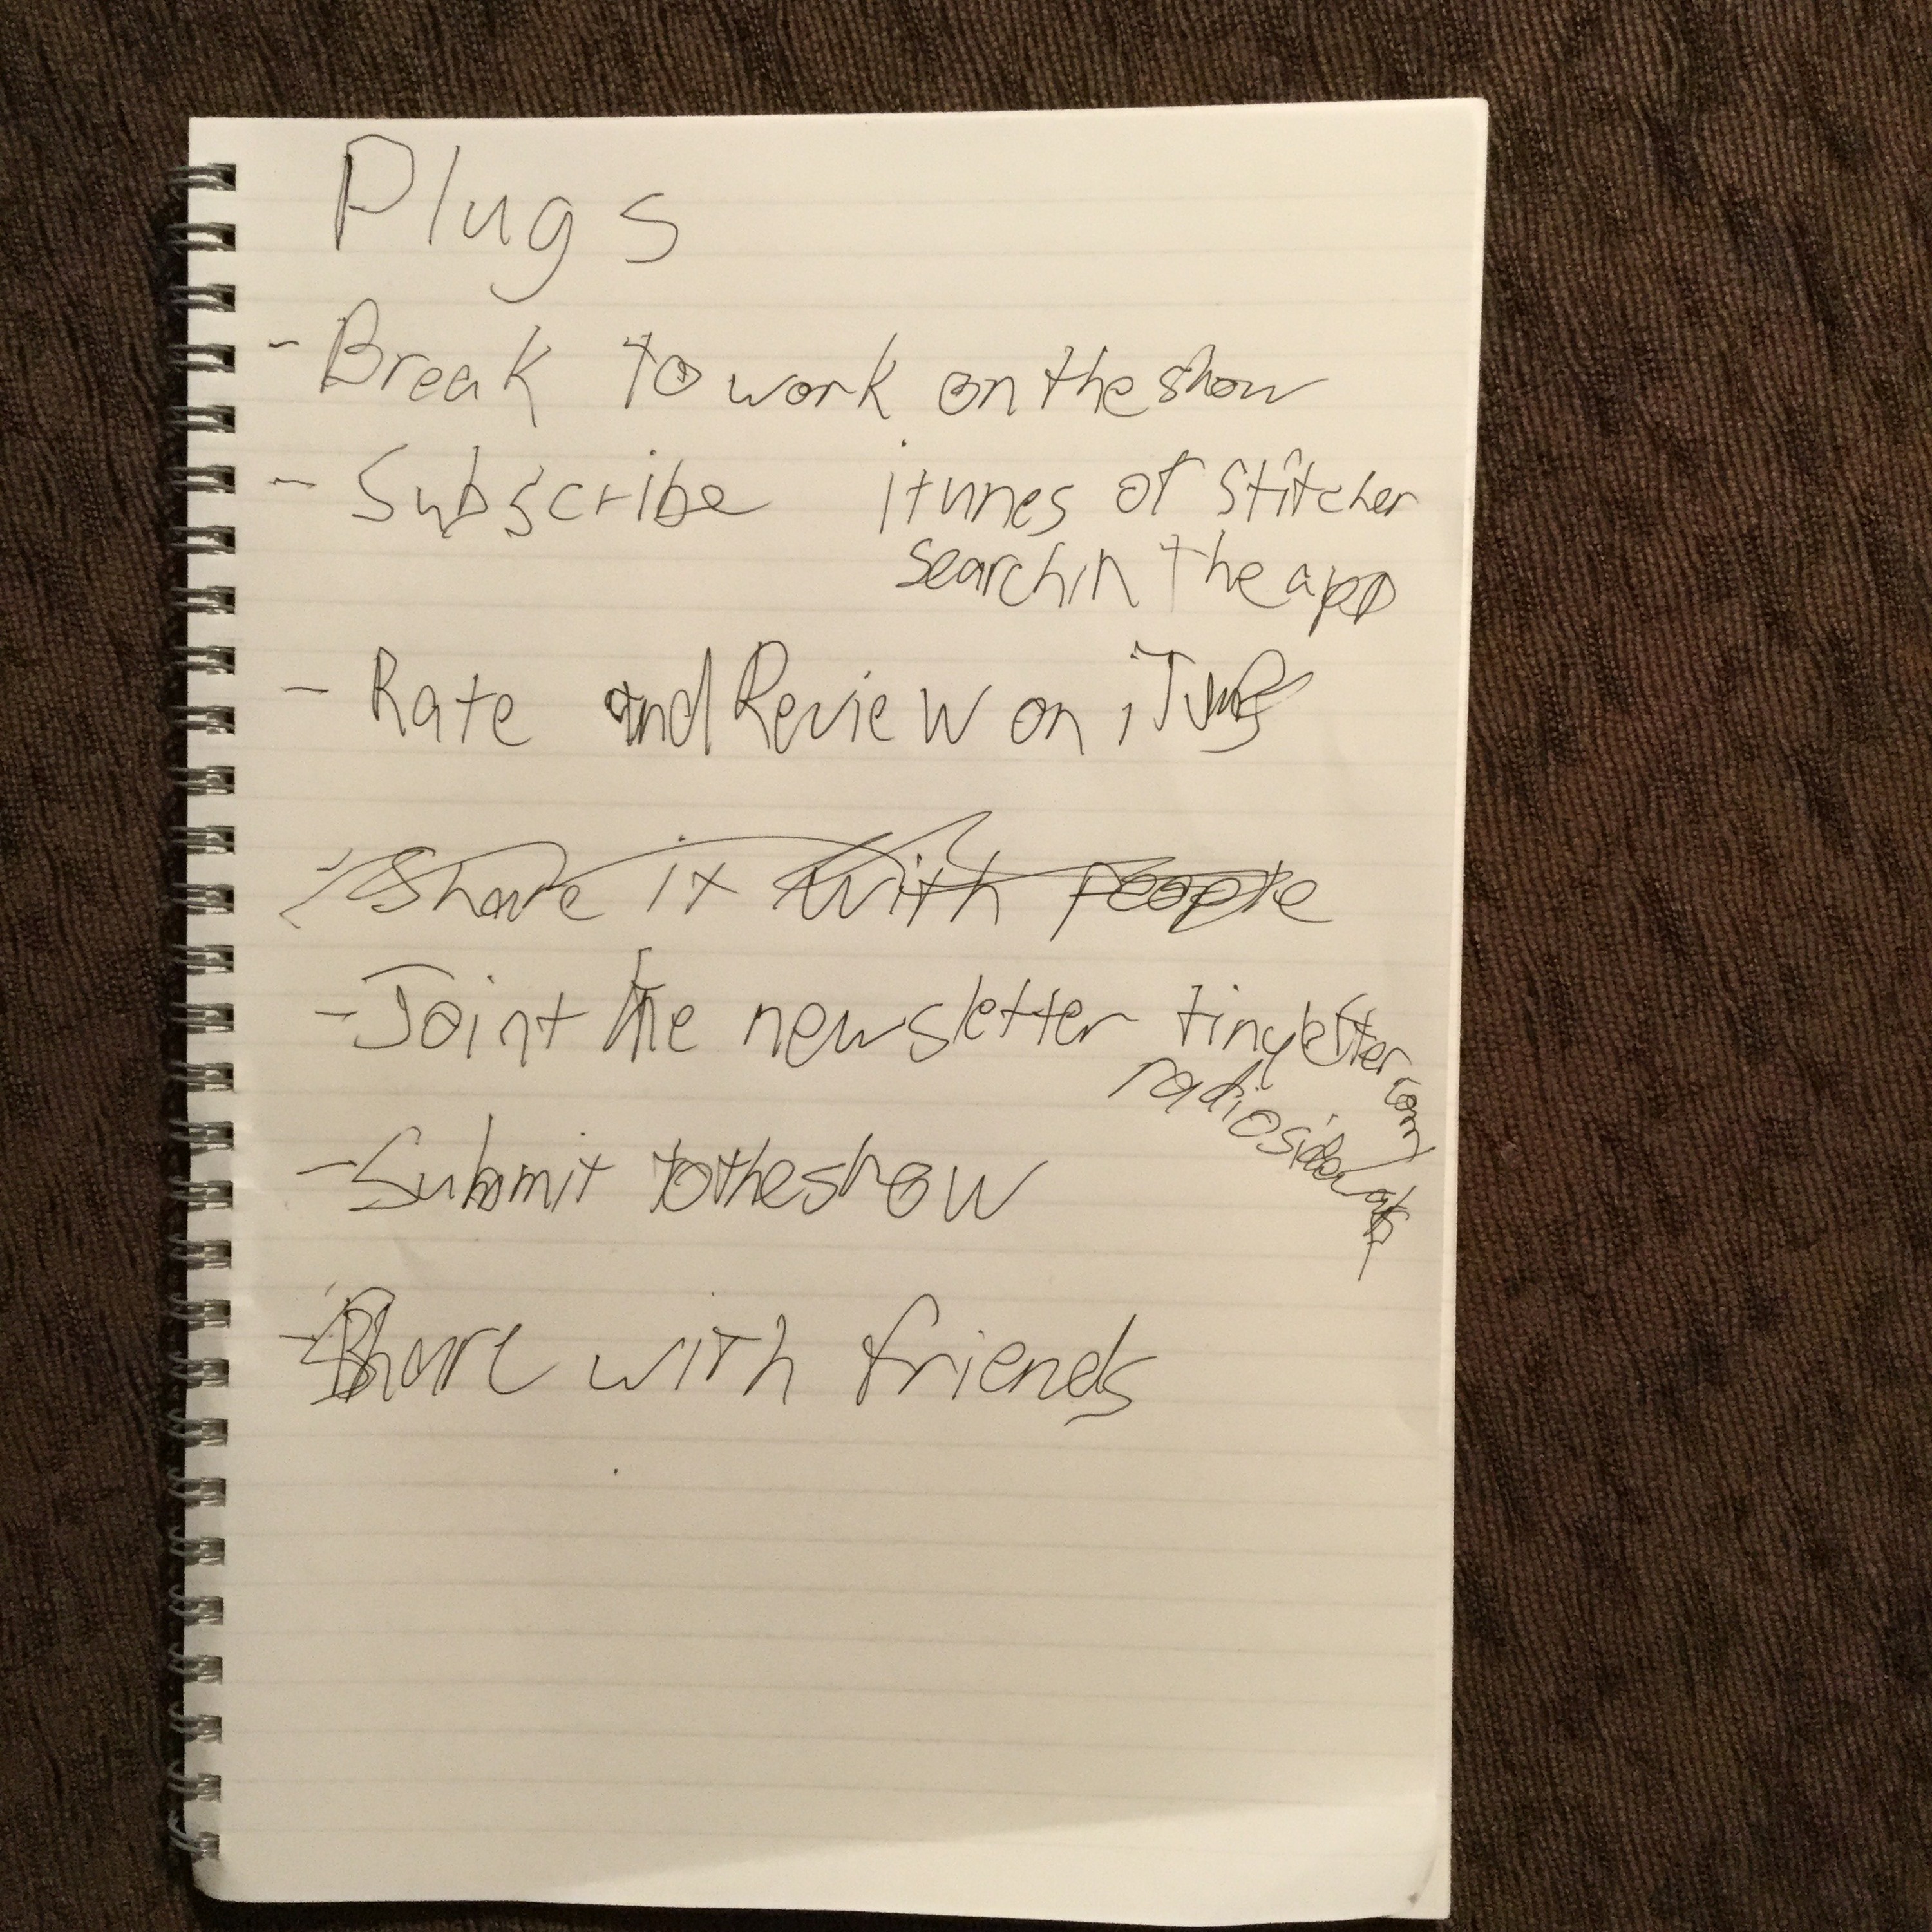 Plugs
- Break to work on the show
- Subscribe itunes or Stitcher
search in the app
- Rate and Review on iTunes
- Share it with people
- Joint the newsletter tinyletter.com/
radiosidewalk
- Submit to the show
- Share with friends